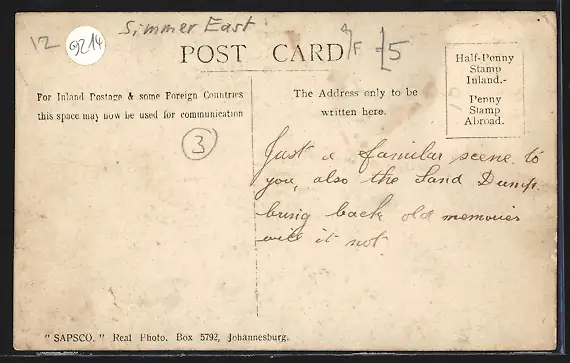 Simmer East
12
9214
POST CARD
F
£5
Half-Penny
Stamp
Inland.-
Penny
Stamp
Abroad.
For Inland Postage & some Foreign Countries
this space may now be used for communication
The Address only to be
written here.
3
Just a familar scene to
you, also the Sand Dump.
bring back old memories
will it not
" SAPSCO. " Real Photo. Box 5792, Johannesburg.